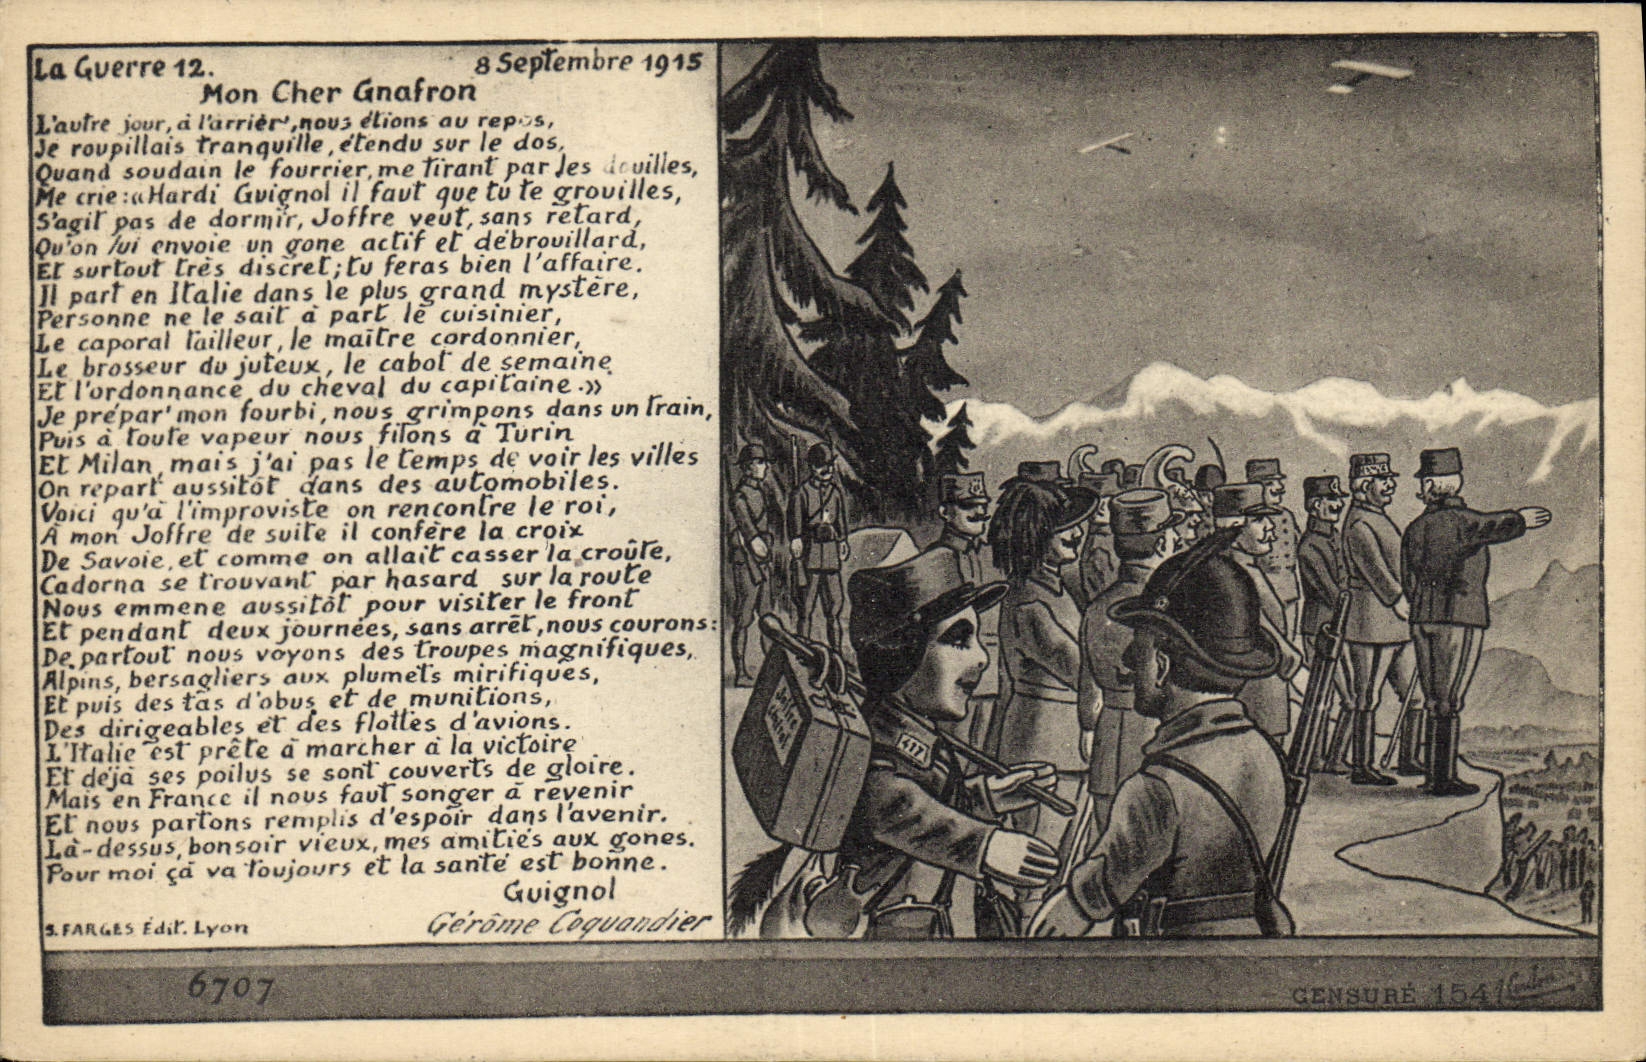 La Guerre 12.
8 Septembre 1915
Mon Cher Gnafron
L'autre jour, à l'arrièr', nous étions au repos,
Je roupillais tranquille, étendu sur le dos,
Quand soudain le fourrier, me tirant par les douilles,
Me crie: «Hardi Guignol il faut que tu te grouilles,
S'agit pas de dormir, Joffre veut, sans retard,
Qu'on lui envoie un gone actif et débrouillard,
Et surtout très discret; tu feras bien l'affaire.
Il part en Italie dans le plus grand mystère,
Personne ne le sait à part le cuisinier,
Le caporal tailleur, le maître cordonnier,
Le brosseur du juteux, le cabot de semaine
Et l'ordonnance du cheval du capitaine.»
Je prépar' mon fourbi, nous grimpons dans un train,
Puis à toute vapeur nous filons à Turin
Et Milan, mais j'ai pas le temps de voir les villes
On repart aussitôt dans des automobiles.
Voici qu'à l'improviste on rencontre le roi,
A mon Joffre de suite il confère la croix
De Savoie, et comme on allait casser la croûte,
Cadorna se trouvant par hasard sur la route
Nous emmene aussitôt pour visiter le front
Et pendant deux journées, sans arrêt, nous courons:
De partout nous voyons des troupes magnifiques,
Alpins, bersagliers aux plumets mirifiques,
Et puis des tas d'obus et de munitions,
Des dirigeables et des flottes d'avions.
L'Italie est prête à marcher à la victoire
Et déjà ses poilus se sont couverts de gloire.
Mais en France il nous faut songer à revenir
Et nous partons remplis d'espoir dans l'avenir.
Là-dessus, bonsoir vieux, mes amitiés aux gones.
Pour moi çà va toujours et la santé est bonne.
Guignol
Gérôme Coquandier
S. FARGES Édit. Lyon
417
6707
CENSURÉ 154